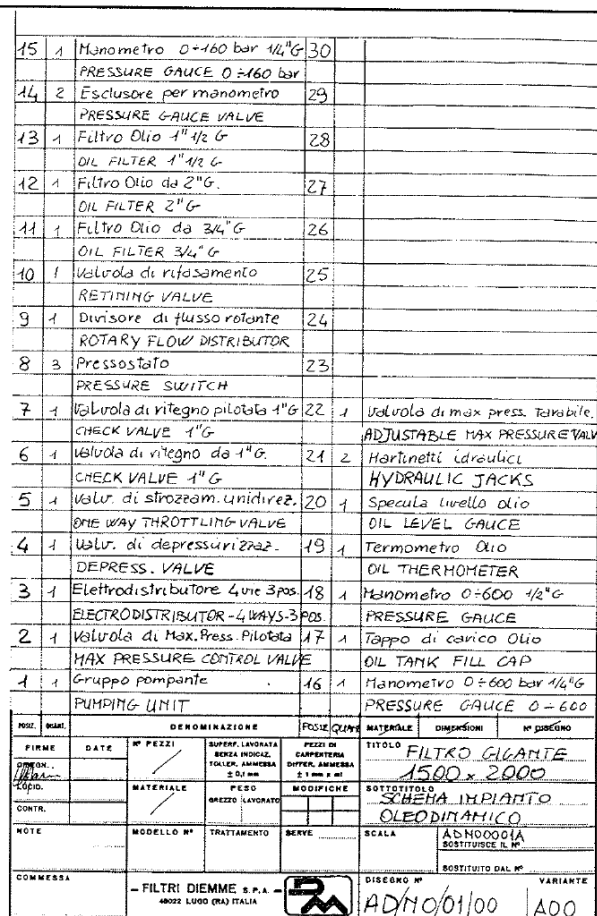 15 1 Manometro 0÷160 bar 1/4"G 30
PRESSURE GAUCE 0÷160 bar
14 2 Esclusore per manometro 29
PRESSURE GAUCE VALVE
13 1 Filtro Olio 1"1/2 G 28
OIL FILTER 1"1/2 G
12 1 Filtro Olio da 2"G. 27
OIL FILTER 2"G
11 1 Filtro Olio da 3/4"G 26
OIL FILTER 3/4"G
10 1 Valvola di rifasamento 25
RETINING VALVE
9 1 Divisore di flusso rotante 24
ROTARY FLOW DISTRIBUTOR
8 3 Pressostato 23
PRESSURE SWITCH
7 1 Valvola di ritegno pilotata 1"G 22 1 Valvola di max press. Tarabile.
CHECK VALVE 1"G ADJUSTABLE MAX PRESSURE VALV
6 1 Valvola di ritegno da 1"G. 21 2 Martinetti idraulici
CHECK VALVE 1"G HYDRAULIC JACKS
5 1 Valv. di strozzam. unidirez. 20 1 Specula livello olio
ONE WAY THROTTLING VALVE OIL LEVEL GAUCE
4 1 Valv. di depressurizzaz. 19 1 Termometro Olio
DEPRESS. VALVE OIL THERMOMETER
3 1 Elettrodistributore 4 vie 3 pos. 18 1 Manometro 0÷600 1/2"G
ELECTRODISTRIBUTOR-4 WAYS-3 POS. PRESSURE GAUCE
2 1 Valvola di Max. Press. Pilotata 17 1 Tappo di carico Olio
MAX PRESSURE CONTROL VALVE OIL TANK FILL CAP
1 1 Gruppo pompante 16 1 Manometro 0÷600 bar 1/4"G
PUMPING UNIT PRESSURE GAUCE 0-600
POSIZ. QUANT. DENOMINAZIONE POSIZ QUANT MATERIALE DIMENSIONI N° DISEGNO
FIRME DATE N° PEZZI SUPERF. LAVORATA SENZA INDICAZ. TOLLER. AMMESSA ± 0,1 mm PEZZI DI CARPENTERIA DIFFER. AMMESSA ± 1 mm x ml TITOLO FILTRO GIGANTE
1500 x 2000
DISEGN.
LUCID. MATERIALE PESO MODIFICHE SOTTOTITOLO SCHEMA IMPIANTO
GREZZO LAVORATO OLEODINAMICO
CONTR.
NOTE MODELLO N° TRATTAMENTO SERVE SCALA ADN00001A
SOSTITUISCE IL N°
SOSTITUITO DAL N°
COMMESSA DISEGNO N° VARIANTE
- FILTRI DIEMME S.P.A. -
48022 LUGO (RA) ITALIA AD/NO/01/00 A00